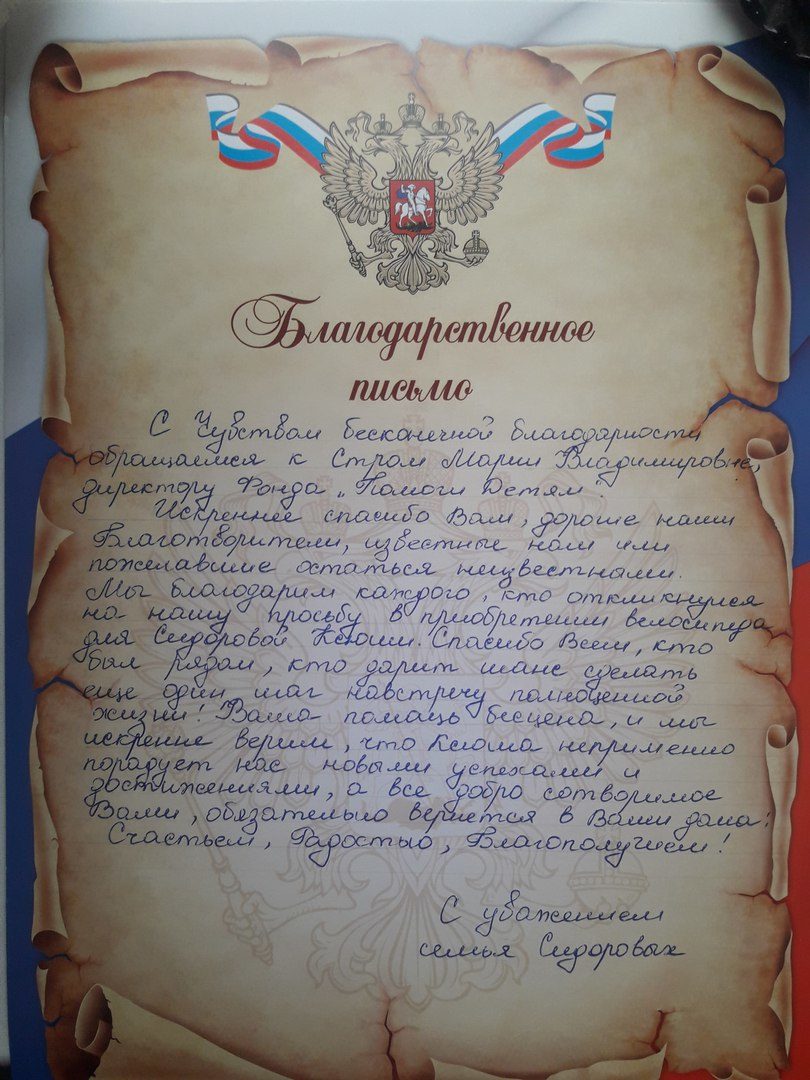 Благодарственное
письмо
С Чувством бесконечной благодарности
обращаемся к Стром Марии Владимировне,
директору Фонда „Помоги Детям".
Искреннее спасибо Вам, дорогие наши
Благотворители, известные нам или
пожелавшие остаться неизвестными.
Мы благодарим каждого, кто откликнулся
на нашу просьбу в приобретении велосипеда
для Сидоровой Ксюши. Спасибо Всем, кто
был рядом, кто дарит шанс сделать
еще один шаг навстречу полноценной
жизни! Ваша помощь бесценна, и мы
искренне верим, что Ксюша неприменно
порадует нас новыми успехами и
достижениями, а все добро сотворимое
Вами, обязательно вернется в Ваши дома:
Счастьем, Радостью, Благополучием!
С уважением
семья Сидоровых